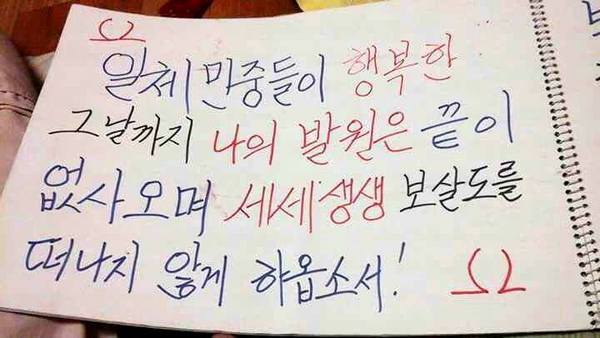 일체 만중들이 행복한
그날까지 나의 발원은 끝이
없사오며 세세생생 보살도를
떠나지 않게 하옵소서!